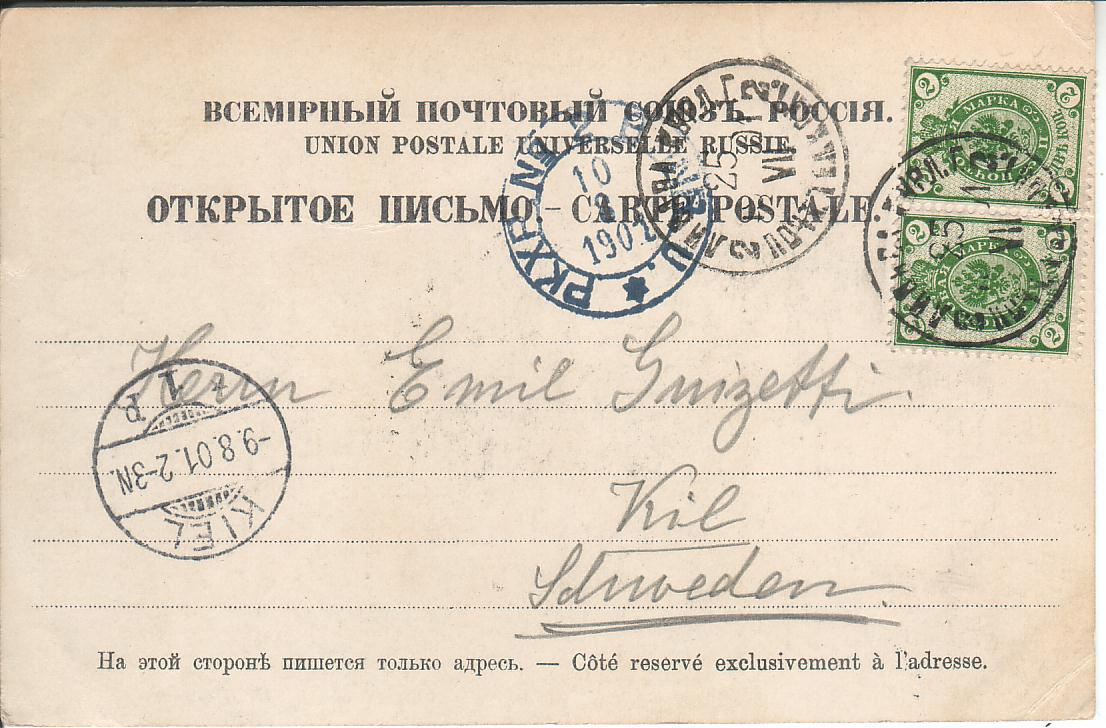 ВСЕМІРНЫЙ ПОЧТОВЫЙ СОЮЗЪ. РОССІЯ.
UNION POSTALE UNIVERSELLE RUSSIE.
ОТКРЫТОЕ ПИСЬМО – CARTE POSTALE.
2 2
МАРКА
2 2
МАРКА
25
VII
25
VII
PKXP
10
8
1901
Herrn Emil Guizetti
Kil
Schweden
KIEL
-9.8.01.2-3N.
1
На этой сторонѣ пишется только адресъ. — Côté reservé exclusivement à l'adresse.